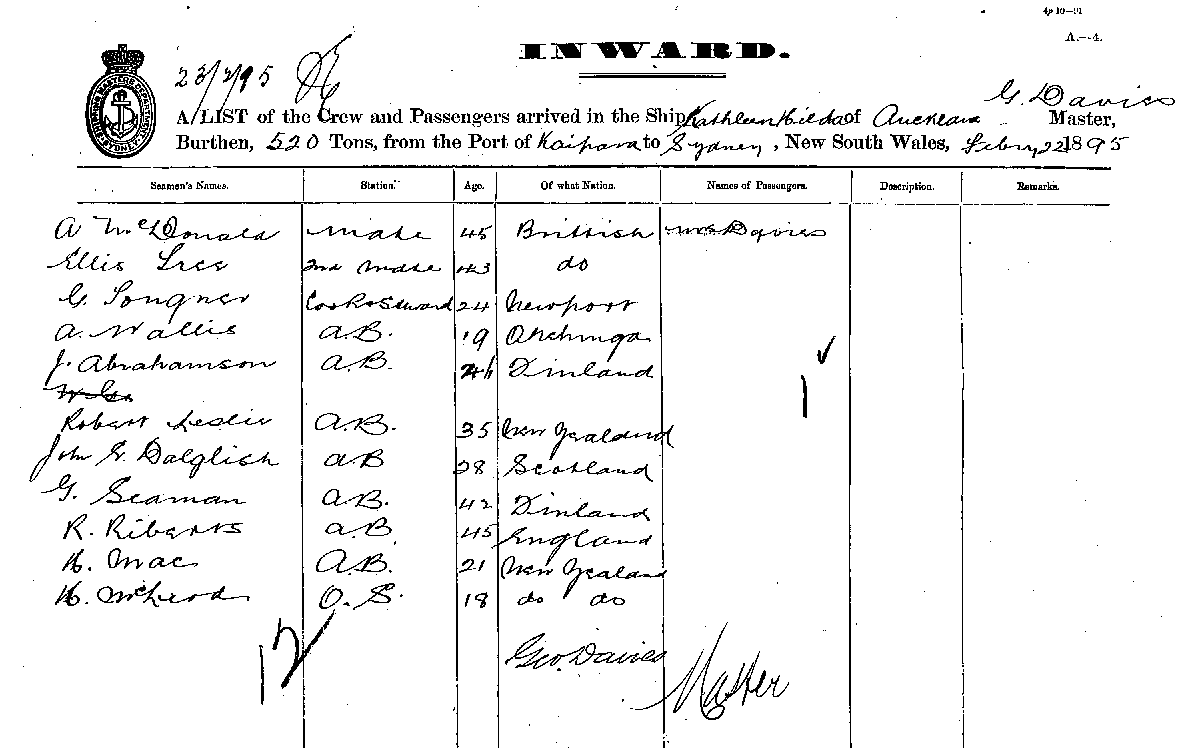 4p 10—91
A.—4.
INWARD.
23/2/95
SHIPPING MASTERS DEPARTMENT SYDNEY
G. Davies
A LIST of the Crew and Passengers arrived in the Ship Kathleen Hilda of Auckland Master,
Burthen, 520 Tons, from the Port of Kaipara to Sydney, New South Wales, Febry 22 1895
Seamen's Names. Station. Age. Of what Nation. Names of Passengers. Description. Remarks.
A McDonald mate 45 Brittish Mrs Davies
Ellis 2nd mate 43 do
G. Cook & Steward 24 Newport
A. Wallis A.B. 19 Onehunga
J. Abrahamson A.B. Finland
Robert Leslie A.B. 35 New Zealand
John G. Dalglish AB 28 Scotland
G. Seaman A.B. 42 Finland
R. Riberts A.B. 45 England
H. Mac A.B. 21 New Zealand
H. McLeod O.S. 18 do do
12
1
Geo. Davies
Master